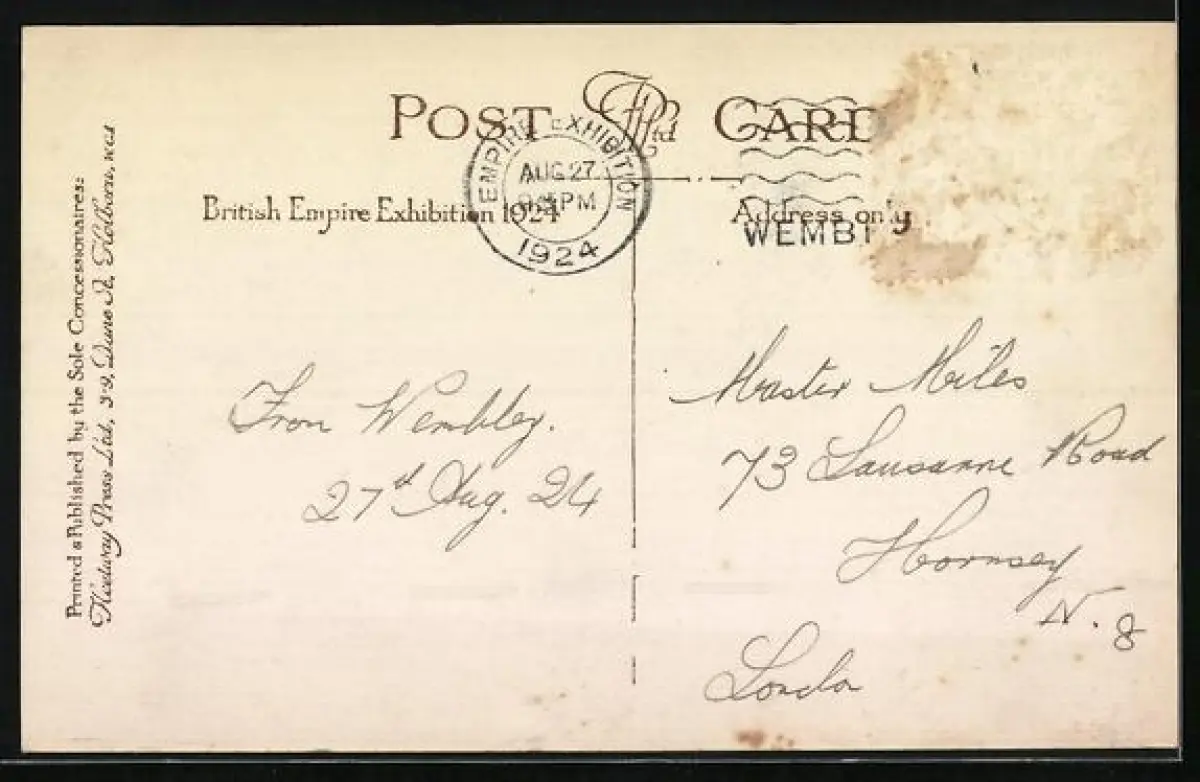 POST CARD
FPLtd
British Empire Exhibition 1924
Address only
EMPIRE EXHIBITION
AUG 27
PM
1924
WEMBL
Printed & Published by the Sole Concessionaires:
Fleetway Press Ltd, 3-9, Dane St, Holborn, WC1
From Wembley.
27th Aug. 24
Master Miles
73 Lausanne Road
Hornsey
N. 8
London